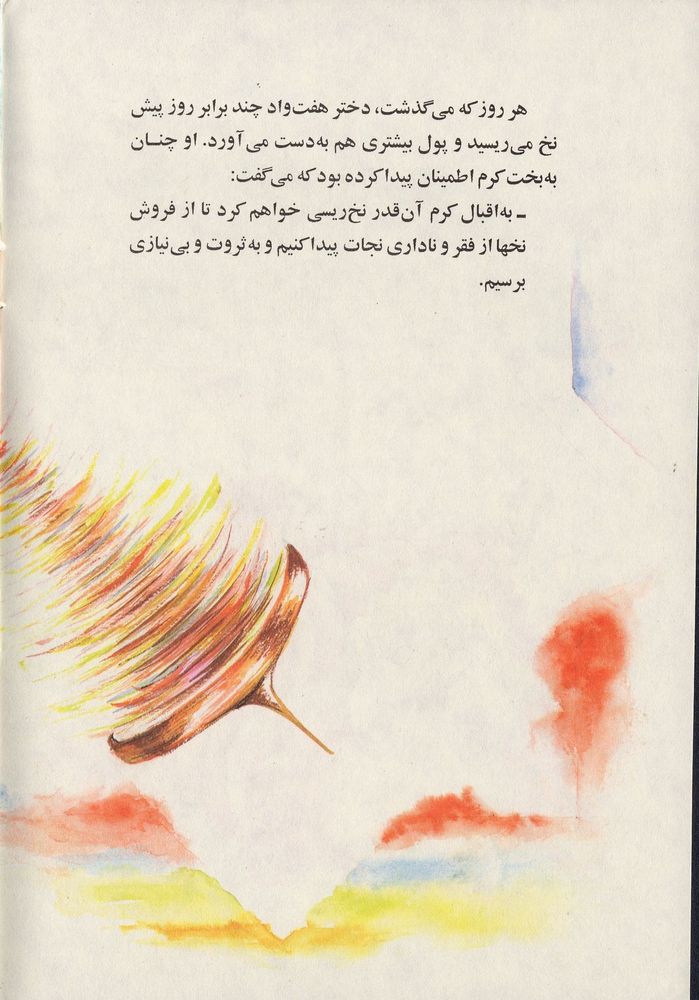 هر روز که می‌گذشت، دختر هفت‌واد چند برابر روز پیش
نخ می‌ریسید و پول بیشتری هم به‌دست می‌آورد. او چنــان
به‌بخت کرم اطمینان پیدا کرده بود که می‌گفت:
ـ به‌اقبال کرم آن‌قدر نخ‌ریسی خواهم کرد تا از فروش
نخها از فقر و ناداری نجات پیدا کنیم و به ثروت و بی‌نیازی
برسیم.